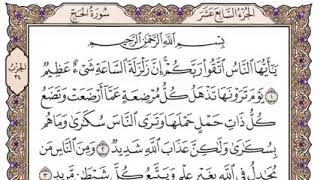 الجزء السابع عشر
سورة الحج
بسم الله الرحمن الرحيم
يَٰٓأَيُّهَا ٱلنَّاسُ ٱتَّقُوا۟ رَبَّكُمْ ۚ إِنَّ زَلْزَلَةَ ٱلسَّاعَةِ شَىْءٌ عَظِيمٌ
١ يَوْمَ تَرَوْنَهَا تَذْهَلُ كُلُّ مُرْضِعَةٍ عَمَّآ أَرْضَعَتْ وَتَضَعُ
كُلُّ ذَاتِ حَمْلٍ حَمْلَهَا وَتَرَى ٱلنَّاسَ سُكَٰرَىٰ وَمَا هُم
بِسُكَٰرَىٰ وَلَٰكِنَّ عَذَابَ ٱللَّهِ شَدِيدٌ ٢ وَمِنَ ٱلنَّاسِ مَن
يُجَٰدِلُ فِى ٱللَّهِ بِغَيْرِ عِلْمٍ وَيَتَّبِعُ كُلَّ شَيْطَٰنٍ مَّرِيدٍ ٣
الحزب
٣٤